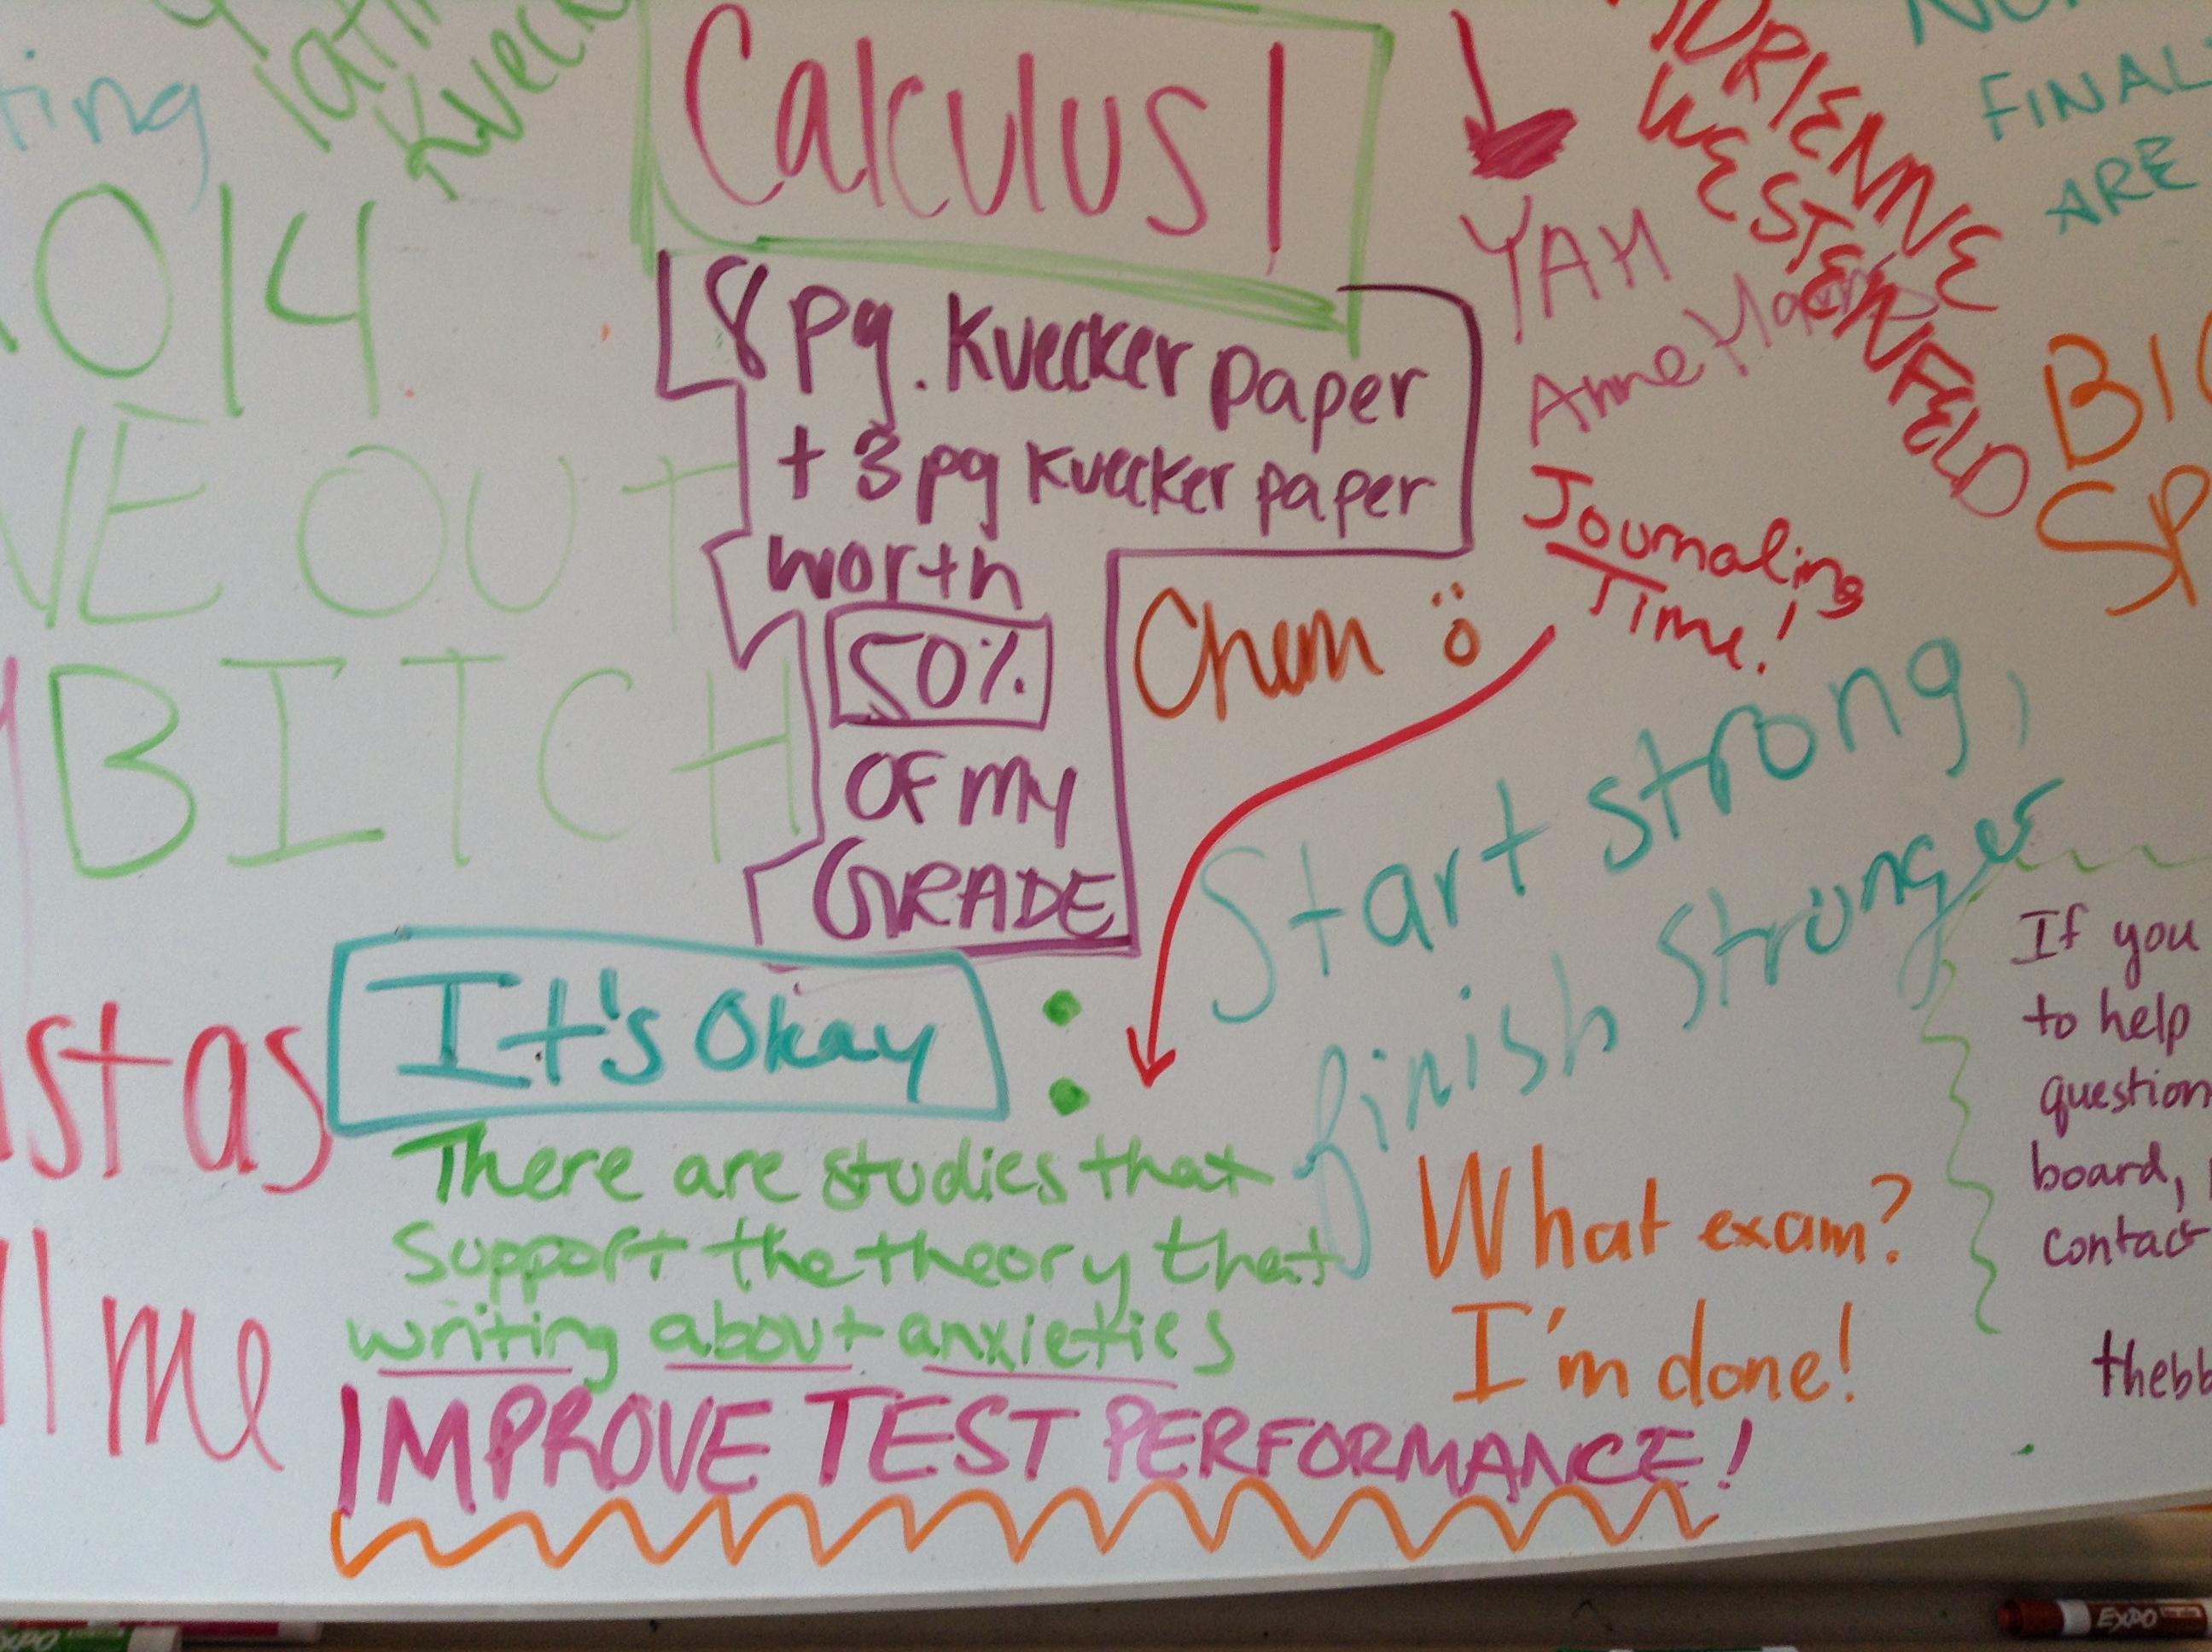 Calculus 1
8 pg. Kuecker paper
+ 3 pg Kuecker paper
worth
50%
OF my
GRADE
ting
014
OUT
BITCH
st as
me
It's Okay :
There are studies that
support the theory that
writing about anxieties
IMPROVE TEST PERFORMANCE!
Chem
YAM
Anne
WESTENFELD
Journaling
Time!
Start strong,
finish stronger
What exam?
I'm done!
FINAL
ARE
If you
to help
question
board,
contact
EXPO